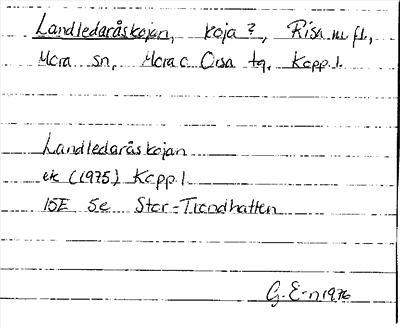 Landledaråskojan, koja?, Risa m fl,
Mora sn, Mora o Orsa tg, Kopp.l.
Landledaråskojan
ek (1975) Kopp.l
15E 5e Stor-Trandhatten
G. E-n 1976